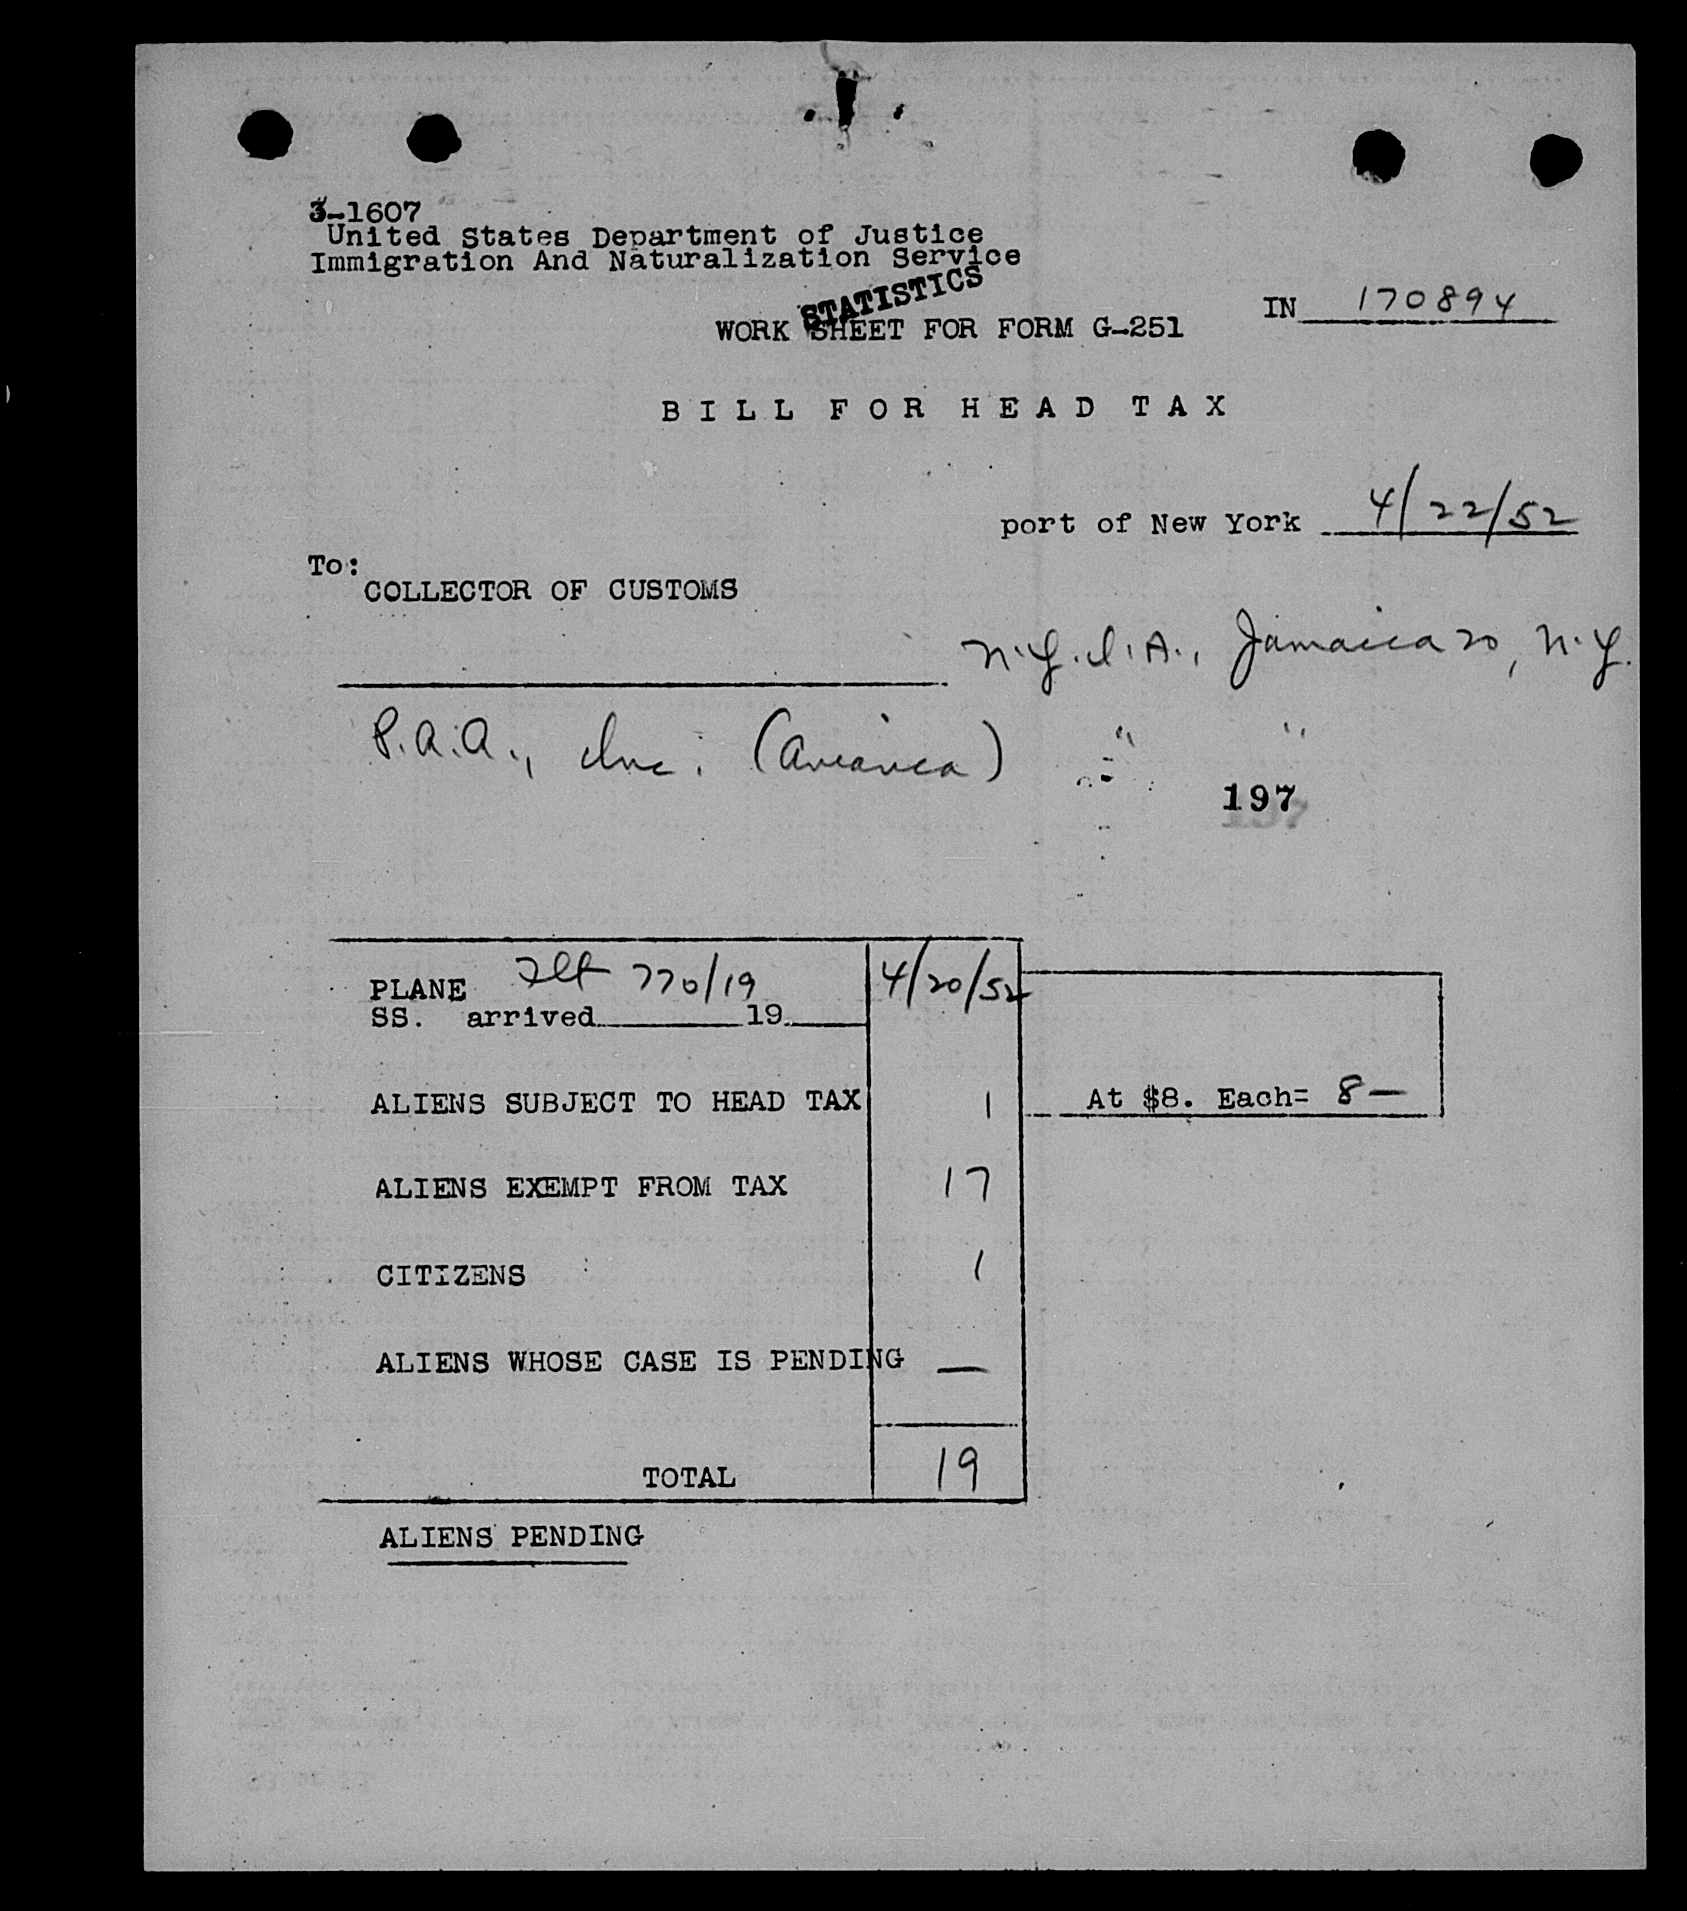 3-1607
United States Department of Justice
Immigration And Naturalization Service
STATISTICS
IN 170894
WORK SHEET FOR FORM G-251
BILL FOR HEAD TAX
port of New York 4/22/52
To:
COLLECTOR OF CUSTOMS
N.Y.I.A., Jamaica 20, N.Y.
P.A.A., Inc. (Avianca) " "
197
PLANE Flt 770/19 4/20/52
SS. arrived 19
ALIENS SUBJECT TO HEAD TAX 1 At $8. Each= 8—
ALIENS EXEMPT FROM TAX 17
CITIZENS 1
ALIENS WHOSE CASE IS PENDING —
TOTAL 19
ALIENS PENDING